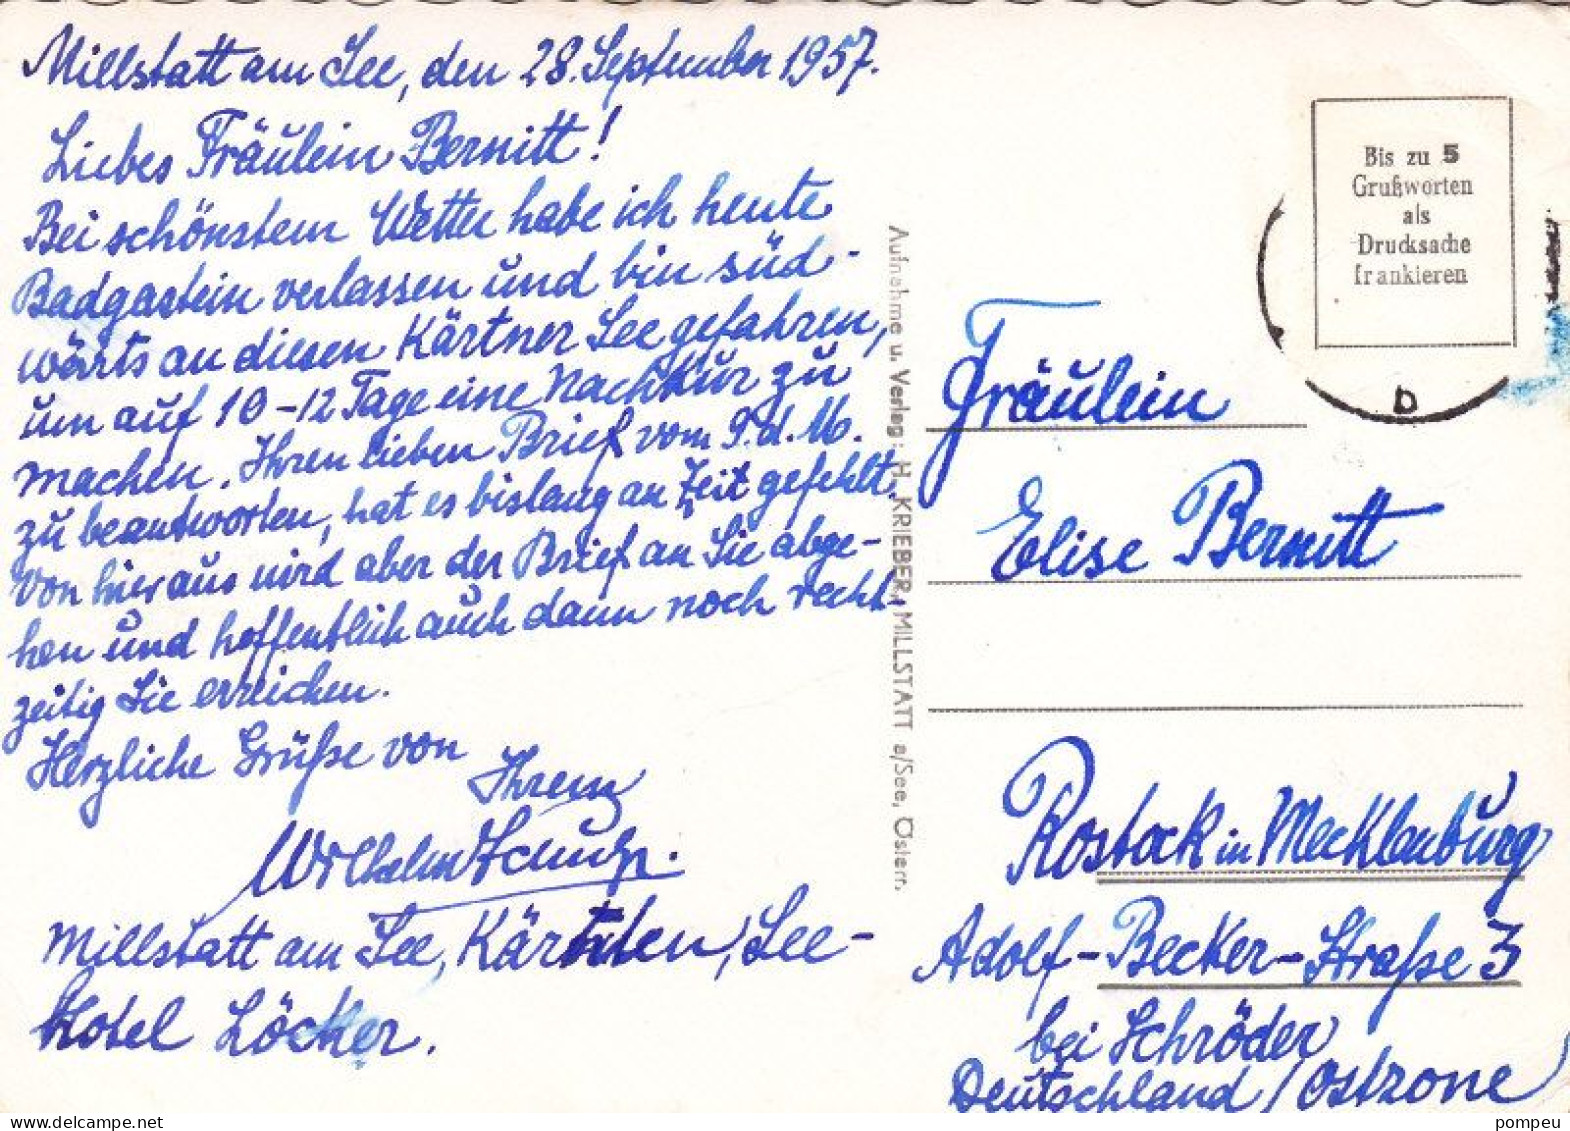 Millstatt am See, den 28. September 1957.
Liebes Fräulein Bernitt!
Bei schönstem Wetter habe ich heute
Badgastein verlassen und bin süd-
wärts an diesen Kärtner See gefahren,
um auf 10-12 Tage eine Nachkur zu
machen. Ihren lieben Brief vom 9. d. M.
zu beantworten, hat es bislang an Zeit gefehlt.
Von hier aus wird aber der Brief an Sie abge-
hen und hoffentlich auch dann noch recht-
zeitig Sie erreichen.
Herzliche Grüße von
Ihrem
Wilhelm
Millstatt am See, Kärnten, See-
Hotel Löcker.
Aufnahme u. Verlag: H. KRIEBER, MILLSTATT a/See, Österr.
Bis zu 5
Grußworten
als
Drucksache
frankieren
b
Fräulein
Elise Bernitt
Rostock in Mecklenburg
Adolf-Becker-Straße 3
bei Schröder
Deutschland (Ostzone)
www.delcampe.net
pompeu